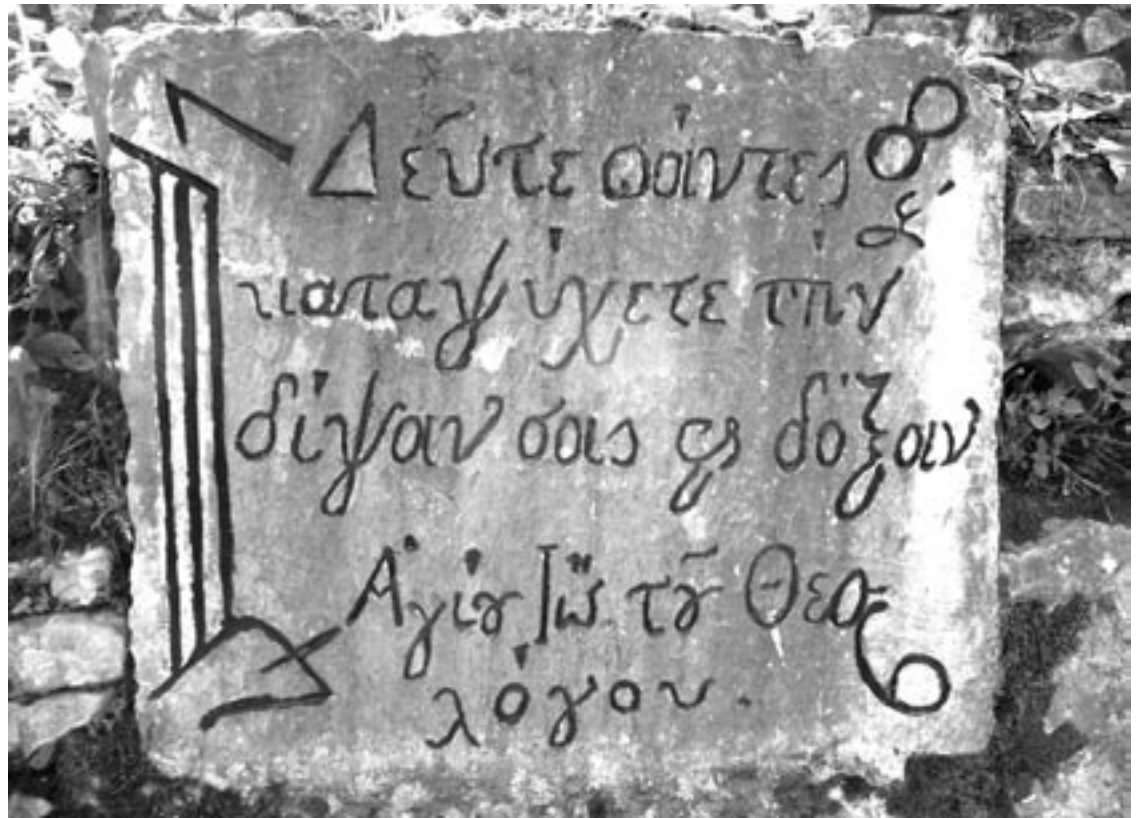 Δεύτε πάντες ϗ
καταψύχετε τήν
δίψαν σας δόξαν
Ἁγίȣ Ἰῶ. τȣ͂ Θεο
λόγου.